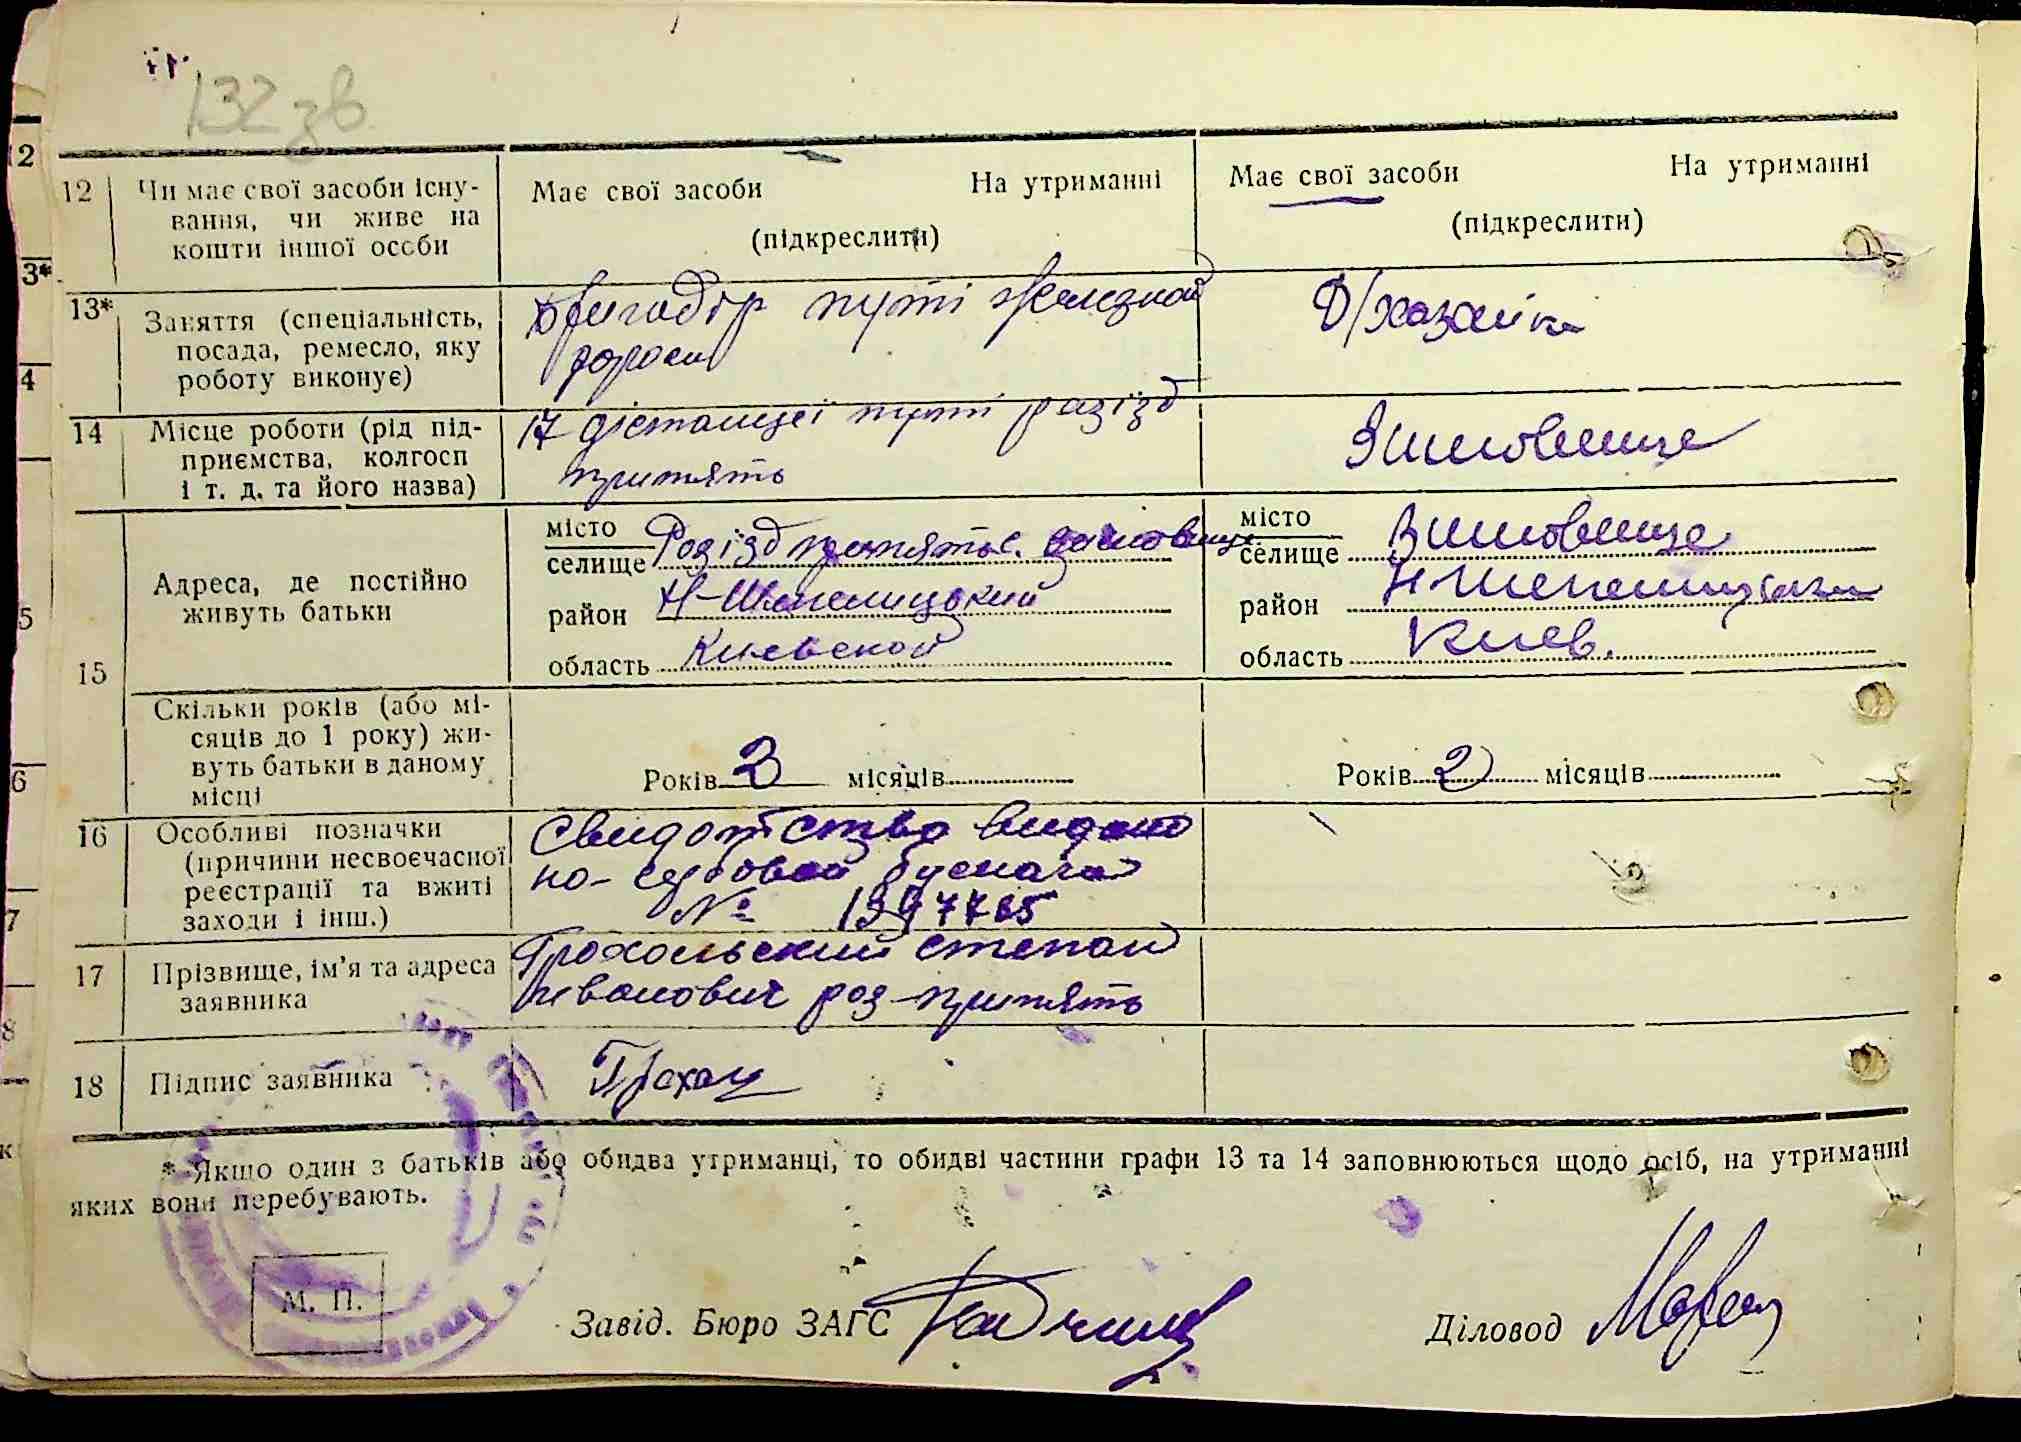 132 зв
12 Чи має свої засоби існу-
вання, чи живе на
кошти іншої особи
Має свої засоби На утриманні
(підкреслити)
Має свої засоби На утриманні
(підкреслити)
13* Заняття (спеціальність,
посада, ремесло, яку
роботу виконує)
бригадір путі железной
дороги
Д/хазяйка
14 Місце роботи (рід під-
приємства, колгосп
і т. д. та його назва)
17 дістанцеі путі разізд
припять
Зимовище
15
Адреса, де постійно
живуть батьки
місто
селище Розізд припять с. зимовище
район Н-Шепелицький
область Киевской
місто
селище Зимовище
район Н Шепелицький
область Киев.
Скільки років (або мі-
сяців до 1 року) жи-
вуть батьки в даному
місці
Років 3 місяців
Років 2 місяців
16 Особливі позначки
(причини несвоєчасної
реєстрації та вжиті
заходи і інш.)
Свидотство видано
на
№
17 Прізвище, ім'я та адреса
заявника
Грохольский степан
иванович роз-припять
18 Підпис заявника
Грохол
* Якщо один з батьків або обидва утриманці, то обидві частини графи 13 та 14 заповнюються щодо осіб, на утриманні
яких вони перебувають.
М. П.
Завід. Бюро ЗАГС
Діловод